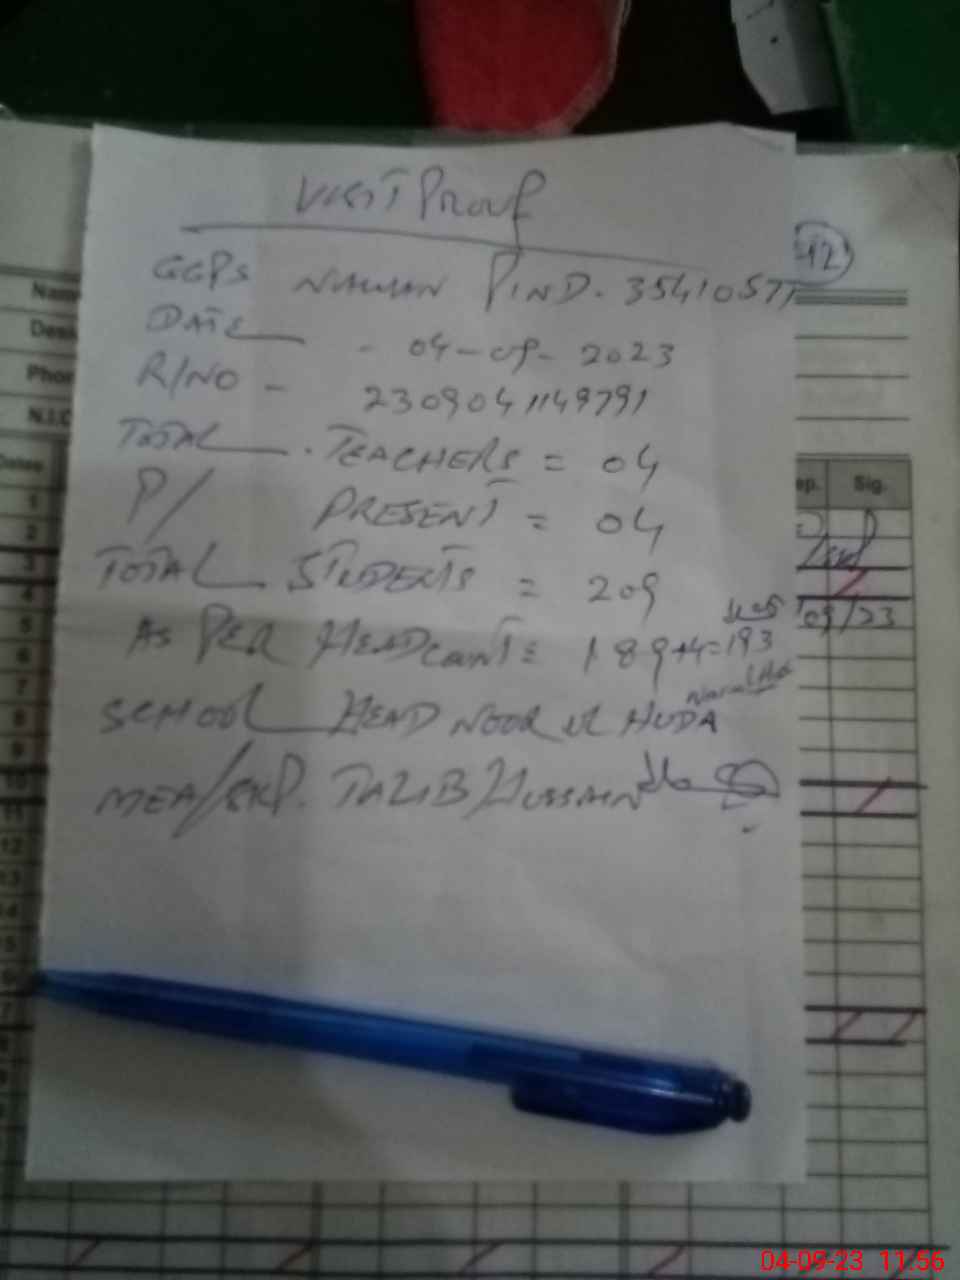 VISIT PROUF
-12
GGPS NAWAN PIND. 35410577
DATE - 04-09-2023
R/NO - 2309041149791
TOTAL . TEACHERS = 04
P/ PRESENT = 04
TOTAL STUDENTS = 209
AS PER HEAD COUNT = 189+4=193
SCHOOL HEAD NOOR UL HUDA
MEA/SKP. TALIB HUSSAIN
Nam
Desi
Phon
N.I.C
Dates
ep. Sig.
1
2
3
4
5 /09/23
6
7
8
9
10
11
12
13
14
04-09-23 11:56